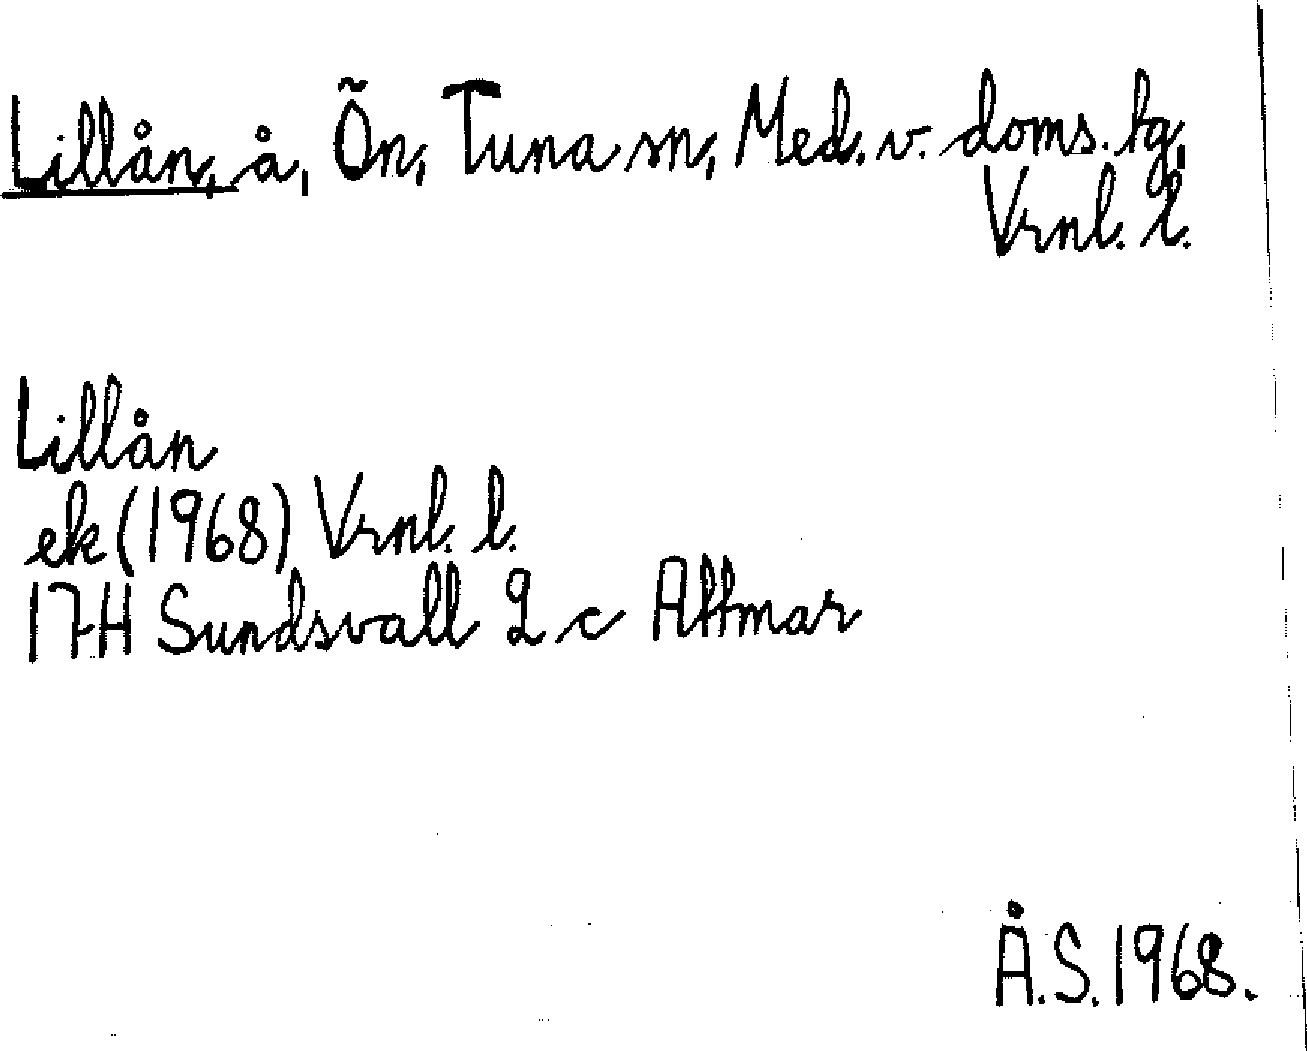 Lillån, å, Ön, Tuna sn, Med. v. doms. tg,
Vrnl. l.
Lillån
ek (1968) Vrnl. l.
17H Sundsvall 2 c Attmar
Å.S. 1968.